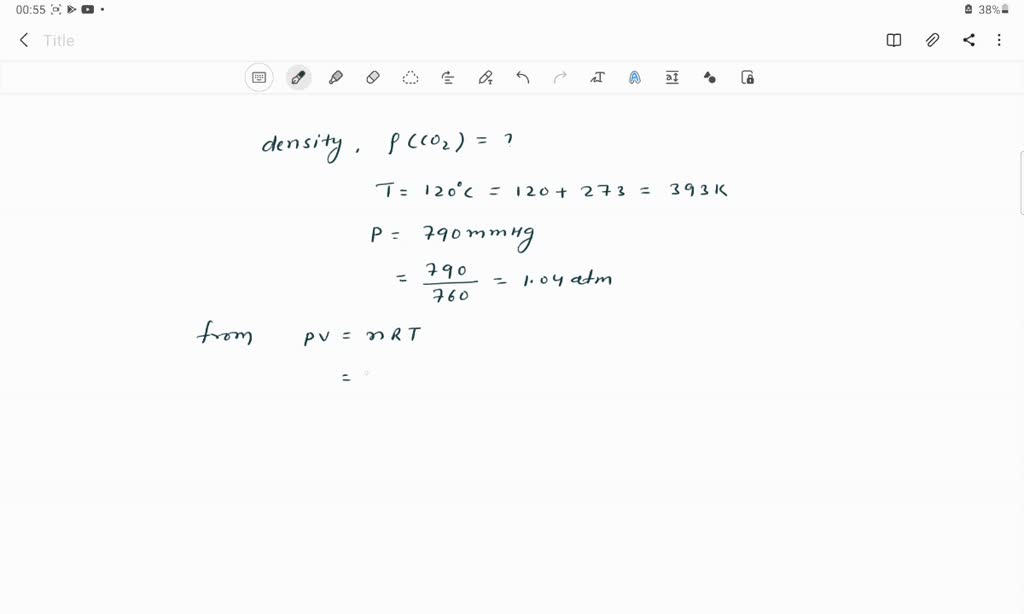 00:55 38%
Title
density, ρ(CO₂) = ?
T = 120°C = 120 + 273 = 393K
P = 790 mmHg
= 790/760 = 1.04 atm
from PV = nRT
=